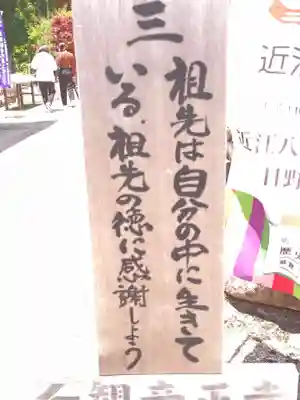 三
祖先は自分の中に生きて
いる。祖先の徳に感謝しよう
近江
近江八
日野
観音正寺